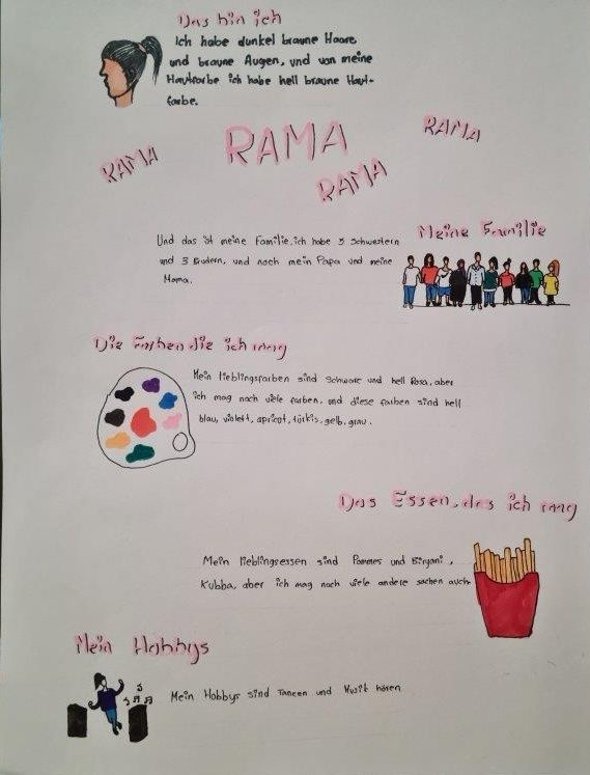 Das bin ich
Ich habe dunkel braune Haare
und braune Augen, und von meine
Hautfarbe ich habe hell braune Haut-
farbe.
RAMA
RAMA
RAMA
RAMA
Meine Familie
Und das ist meine Familie, ich habe 5 Schwestern
und 3 Brüdern, und noch mein Papa und meine
Mama.
Die Farben die ich mag
Mein lieblingsfarben sind Schwarz und hell Rosa, aber
ich mag noch viele farben, und diese farben sind hell
blau, violett, apricot, türkis, gelb, grau.
Das Essen, das ich mag
Mein lieblingsessen sind Pommes und Biryani,
Kubba, aber ich mag noch viele andere sachen auch
Mein Hobbys
Mein Hobbys sind Tanzen und Musik hören